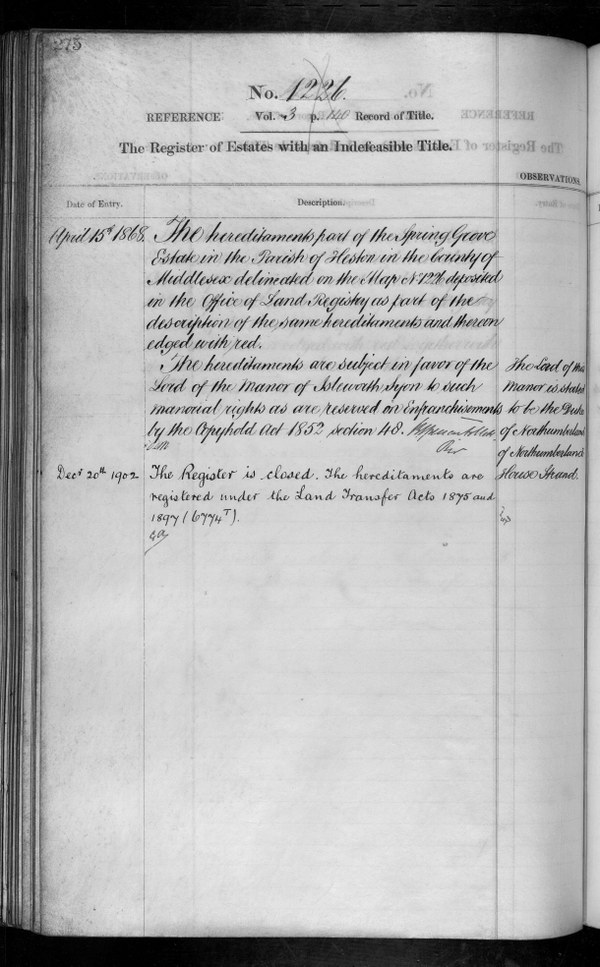 275
No. 1226.
REFERENCE Vol. 3 p. 140 Record of Title.
The Register of Estates with an Indefeasible Title.
OBSERVATIONS.
Date of Entry.
Description.
April 15th 1868.
The hereditaments part of the Spring Grove
Estate in the Parish of Heston in the County of
Middlesex delineated on the Map No 1226 deposited
in the Office of Land Registry as part of the
description of the same hereditaments and thereon
edged with red.
The hereditaments are subject in favor of the
Lord of the Manor of Isleworth Syon to such
manorial rights as are reserved on Enfranchisements
by the Copyhold Act 1852 section 48.
The Lord of this
Manor is stated
to be the Duke
of Northumberland
of Northumberland
House Strand.
Decr 20th 1902
The Register is closed. The hereditaments are
registered under the Land Transfer Acts 1875 and
1897 (6774T).